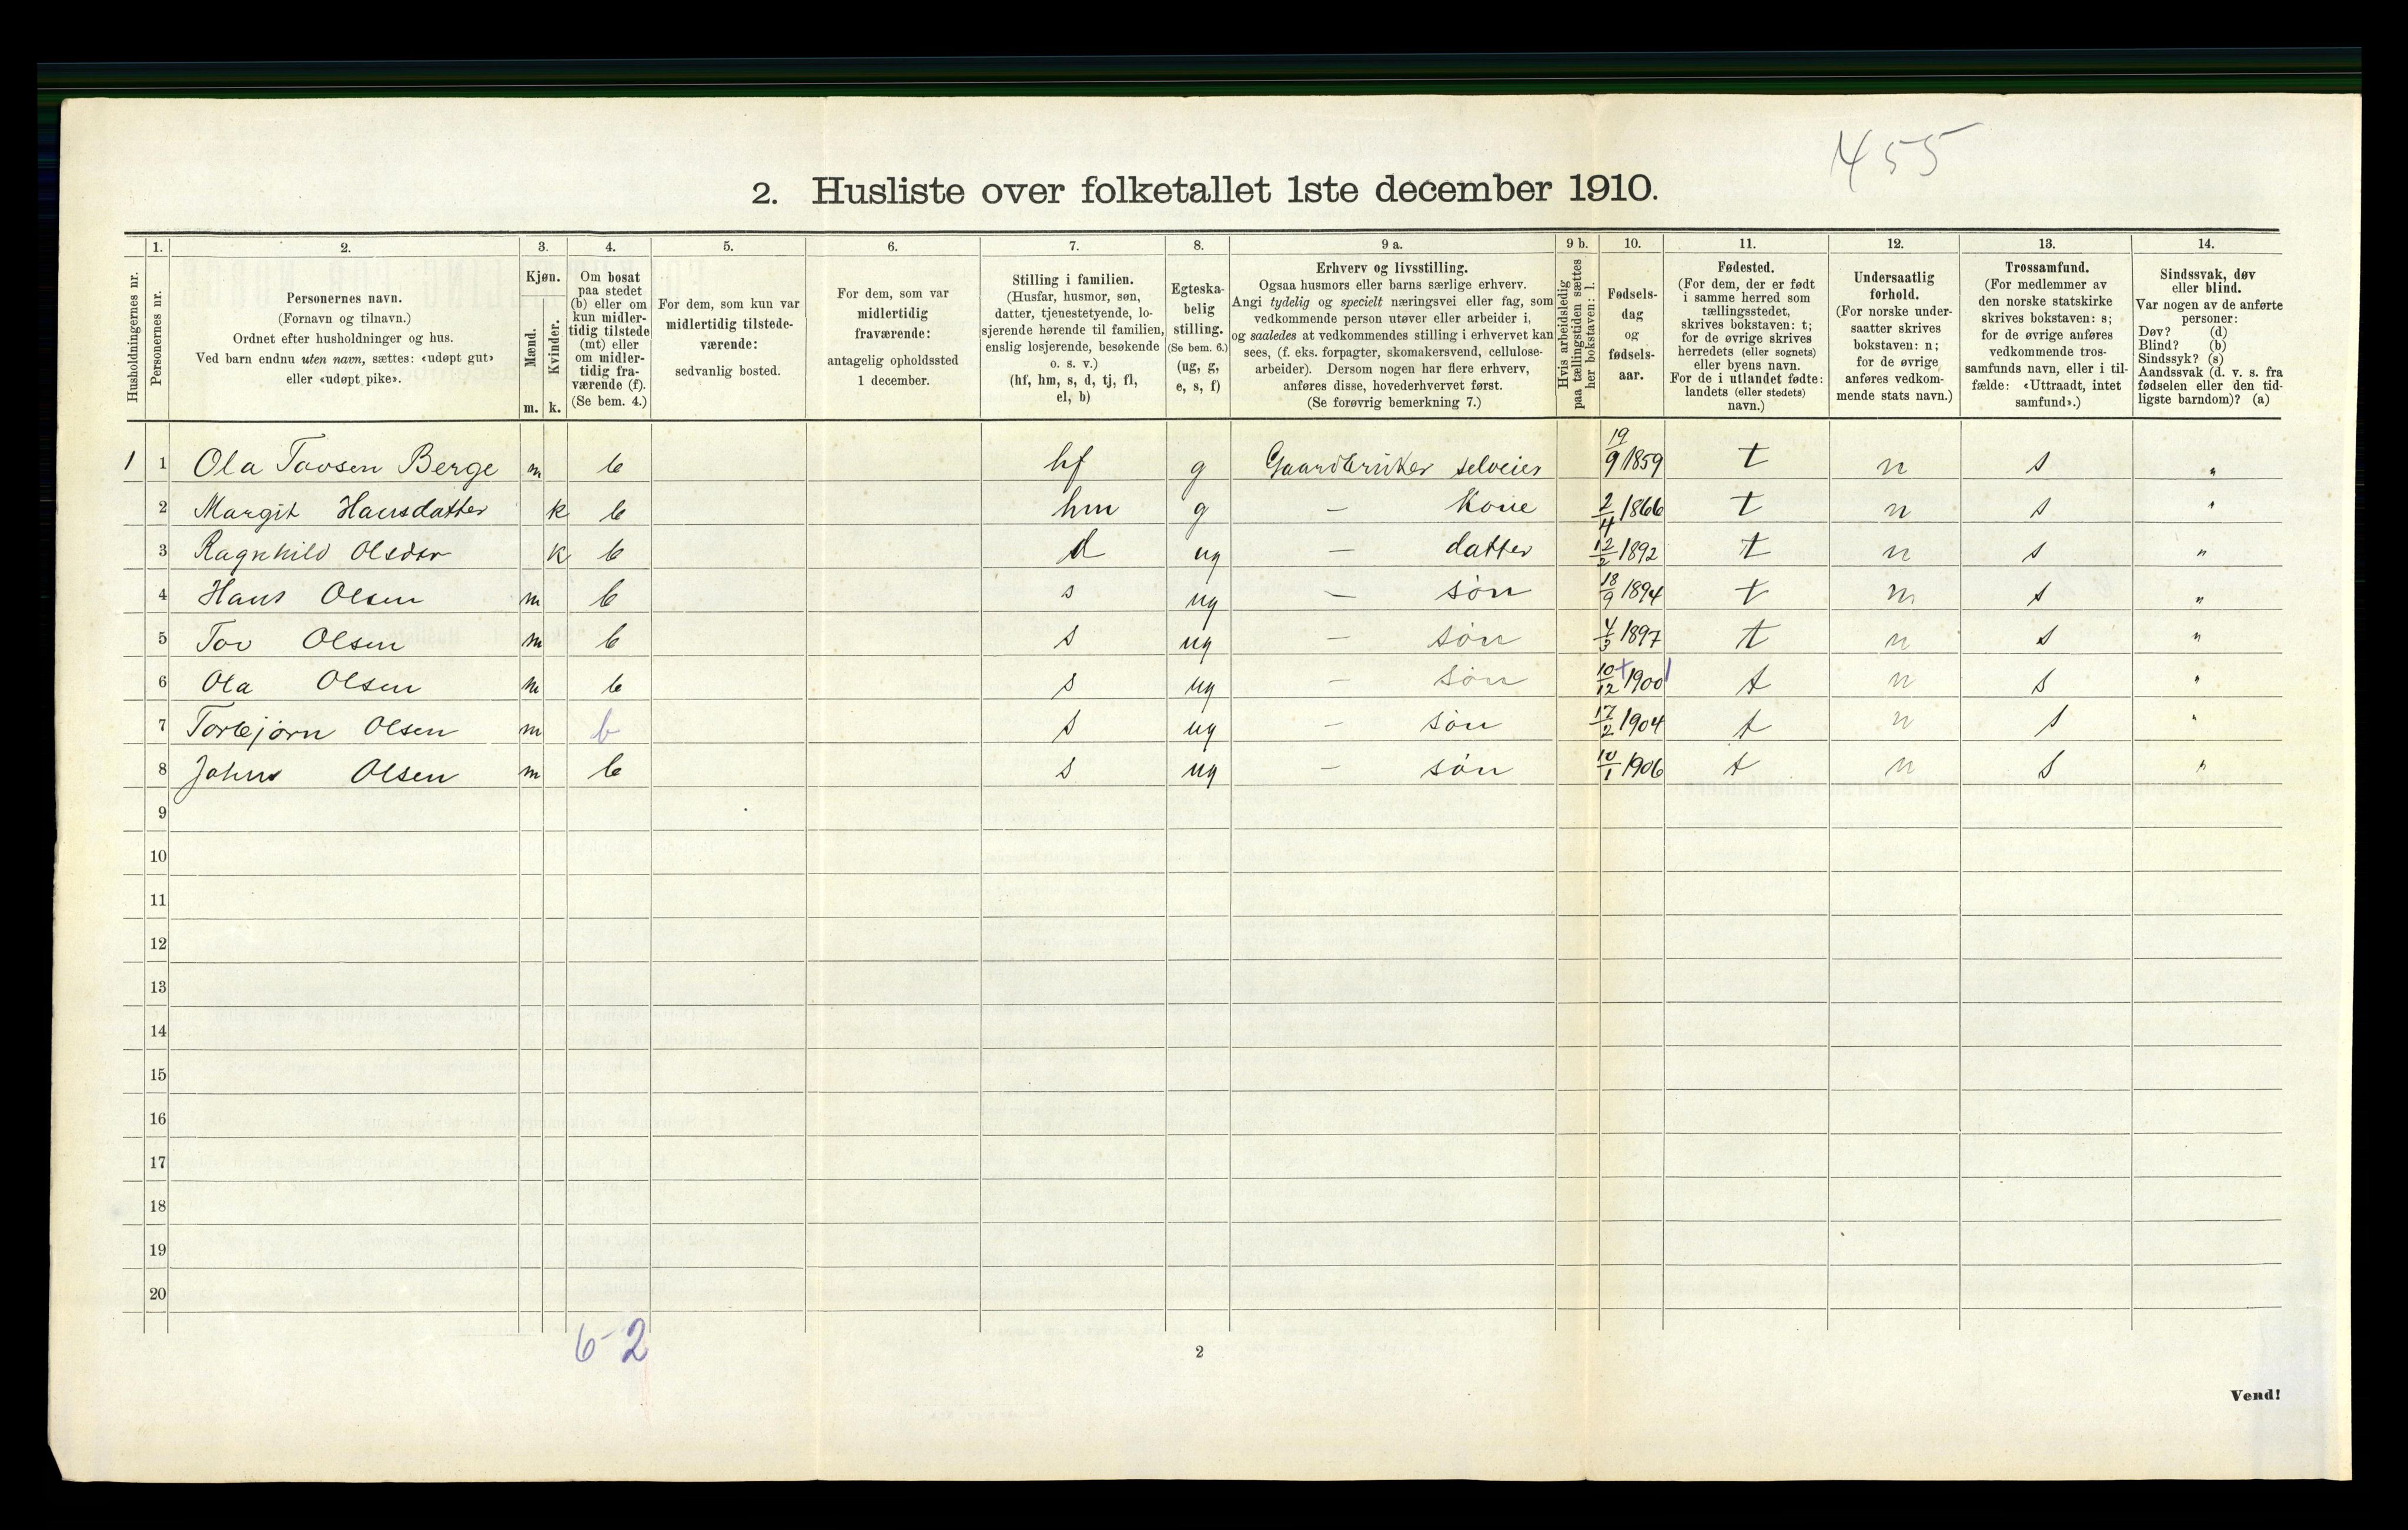 455
2. Husliste over folketallet 1ste december 1910.
Husholdningernes nr.
1.
Personernes nr.
2.
Personernes navn.
(Fornavn og tilnavn.)
Ordnet efter husholdninger og hus.
Ved barn endnu uten navn, sættes: «udøpt gut»
eller «udøpt pike».
3.
Kjøn.
Mænd.
Kvinder.
m. k.
4.
Om bosat
paa stedet
(b) eller om
kun midler-
tidig tilstede
(mt) eller
om midler-
tidig fra-
værende (f).
(Se bem. 4.)
5.
For dem, som kun var
midlertidig tilstede-
værende:
sedvanlig bosted.
6.
For dem, som var
midlertidig
fraværende:
antagelig opholdssted
1 december.
7.
Stilling i familien.
(Husfar, husmor, søn,
datter, tjenestetyende, lo-
sjerende hørende til familien,
enslig losjerende, besøkende
o. s. v.)
(hf, hm, s, d, tj, fl,
el, b)
8.
Egteska-
belig
stilling.
(Se bem. 6.)
(ug, g,
e, s, f)
9 a.
Erhverv og livsstilling.
Ogsaa husmors eller barns særlige erhverv.
Angi tydelig og specielt næringsvei eller fag, som
vedkommende person utøver eller arbeider i,
og saaledes at vedkommendes stilling i erhvervet kan
sees, (f. eks. forpagter, skomakersvend, cellulose-
arbeider). Dersom nogen har flere erhverv,
anføres disse, hovederhvervet først.
(Se forøvrig bemerkning 7.)
9 b.
Hvis arbeidsledig
paa tællingstiden sættes
her bokstaven: l.
10.
Fødsels-
dag
og
fødsels-
aar.
11.
Fødested.
(For dem, der er født
i samme herred som
tællingsstedet,
skrives bokstaven: t;
for de øvrige skrives
herredets (eller sognets)
eller byens navn.
For de i utlandet fødte:
landets (eller stedets)
navn.)
12.
Undersaatlig
forhold.
(For norske under-
saatter skrives
bokstaven: n;
for de øvrige
anføres vedkom-
mende stats navn.)
13.
Trossamfund.
(For medlemmer av
den norske statskirke
skrives bokstaven: s;
for de øvrige anføres
vedkommende tros-
samfunds navn, eller i til-
fælde: «Uttraadt, intet
samfund».)
14.
Sindssvak, døv
eller blind.
Var nogen av de anførte
personer:
Døv? (d)
Blind? (b)
Sindssyk? (s)
Aandssvak (d. v. s. fra
fødselen eller den tid-
ligste barndom)? (a)
1 1 Ola Tovsen Berge m b hf g Gaardbruker selveier 19/9 1859 t n s "
2 Margit Hansdatter k b hm g — Kone 2/4 1866 t n s "
3 Ragnhild Olsdtr k b d ug — datter 12/2 1892 t n s "
4 Hans Olsen m b s ug — søn 18/9 1894 t n s "
5 Tov Olsen m b s ug — søn 4/3 1897 t n s "
6 Ola Olsen m b s ug — søn 10/12 1900 t n s "
7 Torbjørn Olsen m b s ug — søn 17/2 1904 t n s "
8 Johns Olsen m b s ug — søn 10/1 1906 t n s "
9
10
11
12
13
14
15
16
17
18
19
20
6-2
2
Vend!